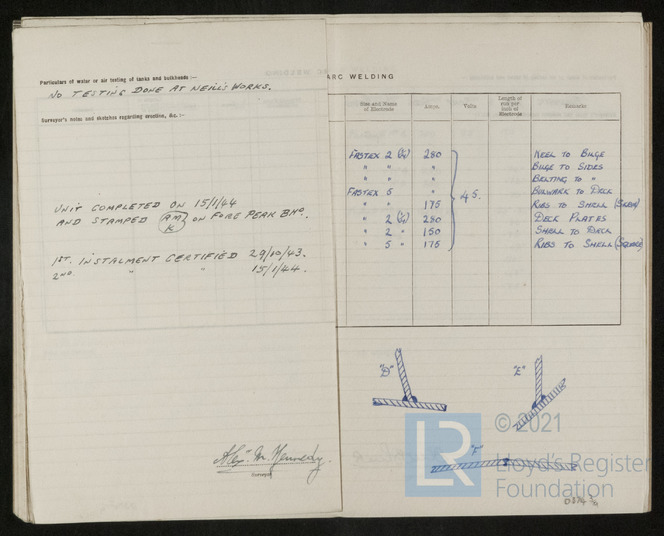 Particulars of water or air testing of tanks and bulkheads :—
NO TESTING DONE AT NEILL'S WORKS.
Surveyor's notes and sketches regarding erection, &c. :—
UNIT COMPLETED ON 15/1/44
AND STAMPED AM K ON FORE PEAK BHD.
1ST. INSTALMENT CERTIFIED 29/10/43.
2ND " " 15/1/44.
Alexr. M. Kennedy.
Surveyor
ARC WELDING
Size and Name of Electrode Amps. Volts Length of run per inch of Electrode Remarks
FASTEX 2 280 KEEL TO BILGE
" " " BILGE TO SIDES
" " " BELTING TO "
FASTEX 5 " BULWARK TO DECK
" " 175 RIBS TO SHELL
45.
" 2 " 280 DECK PLATES
" 2 " 150 SHELL TO DECK
" 5 " 175 RIBS TO SHELL (SQUARE)
"D" "E"
"F"
LR
© 2021
Lloyd's Register
Foundation